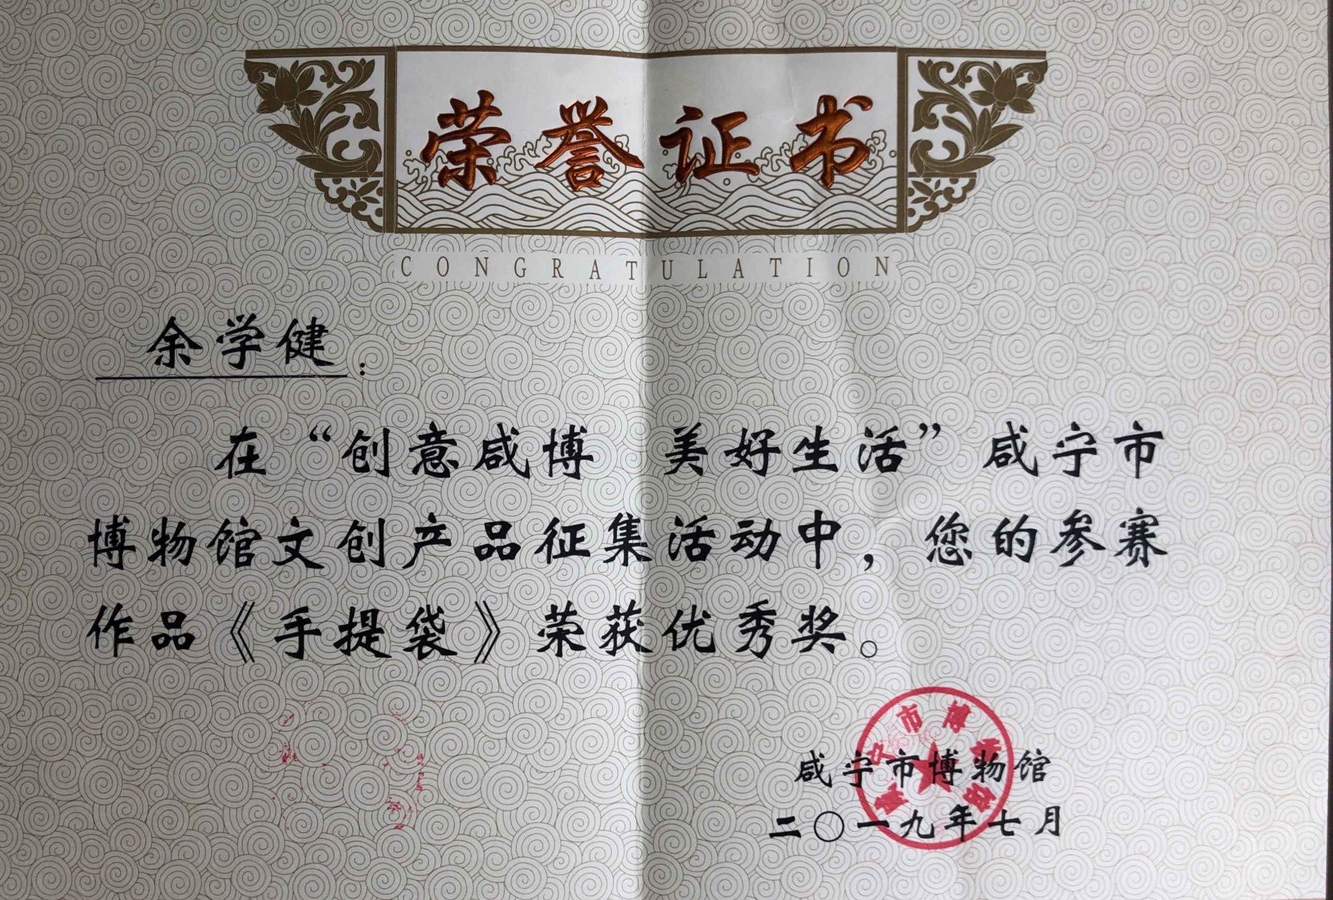 荣誉证书
CONGRATULATION
余学健：
在“创意咸博 美好生活”咸宁市
博物馆文创产品征集活动中，您的参赛
作品《手提袋》荣获优秀奖。
咸宁市博物馆
二〇一九年七月
咸宁市博物馆